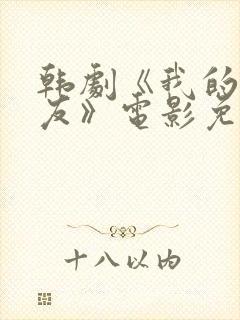 韩劇《我的
友》電影免
十八以内